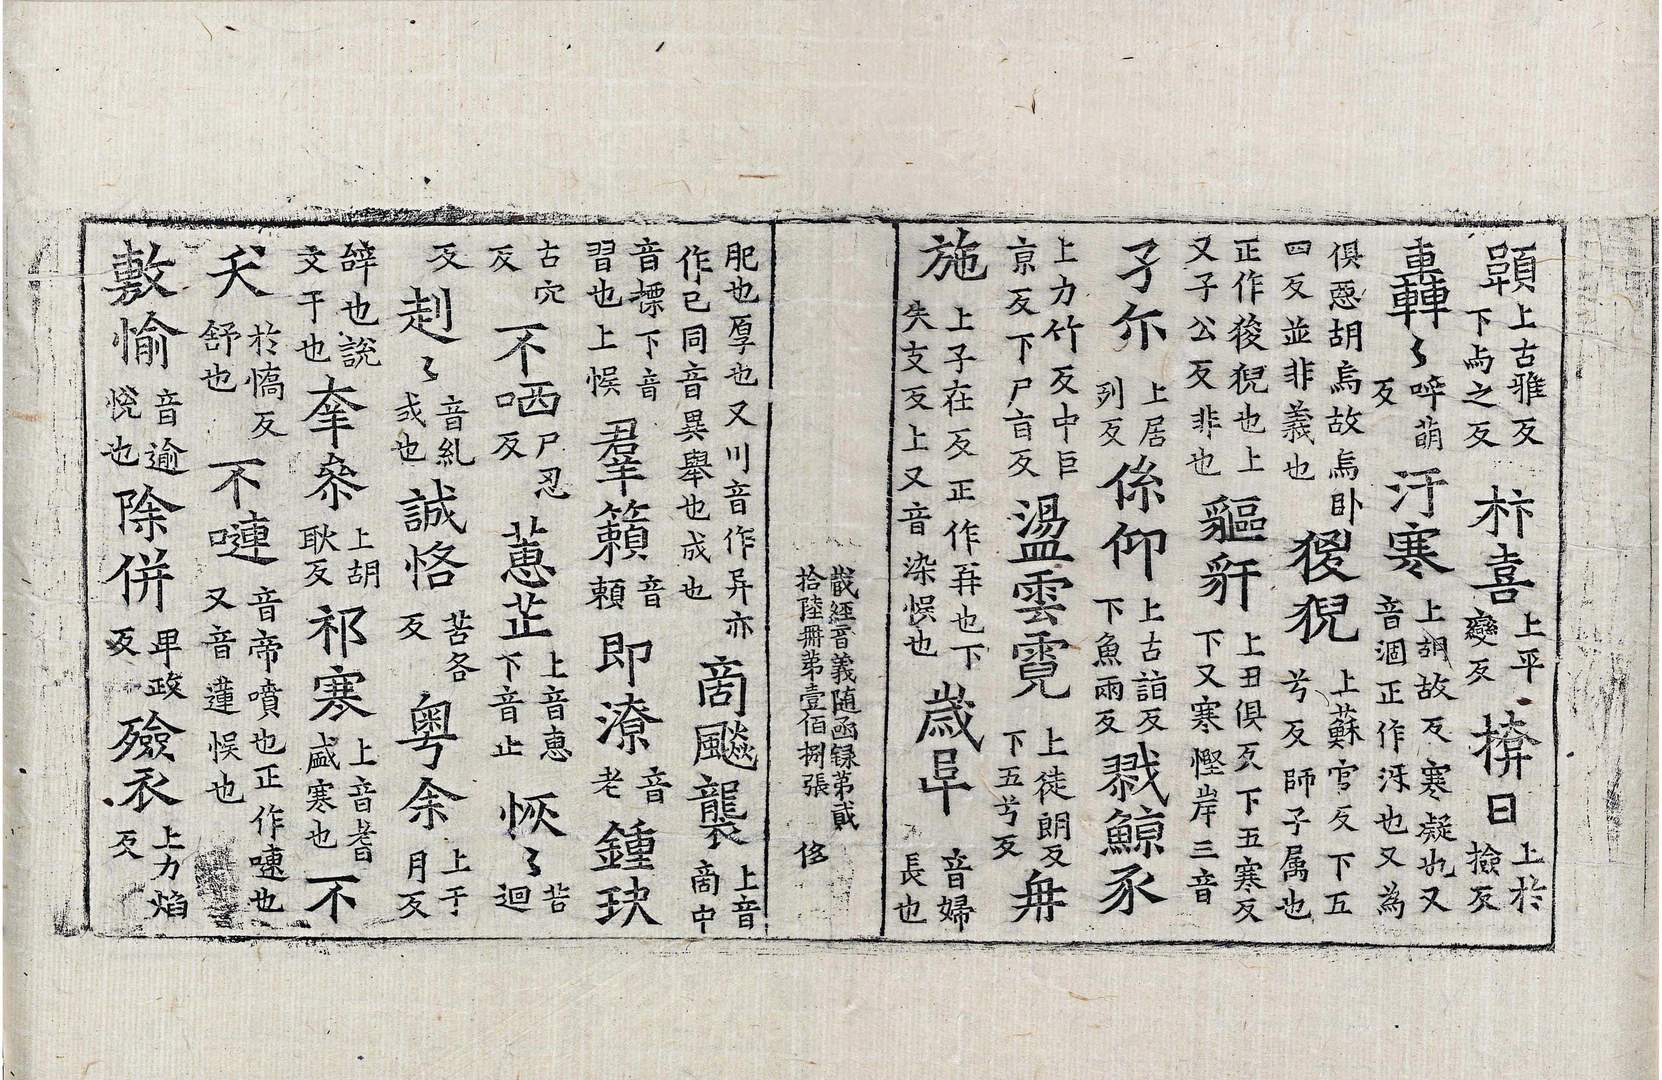 顕上古雅反下卨之反 㭓喜上平變反 掽日上於撿反
轟轟〻啐萌反 汙寒上胡故反寒凝也又音涸正作冱也又為
俱惡胡烏故烏卧四反並非義也 猣猊上蘇官反下五兮反師子属也
正作狻猊也上又子公反非也 貙豻上丑俱反下五寒反下又寒慳岸三音
孑尒上居列反 係仰上古詣反下魚兩反 剹鯨豕
上力竹反中巨亰反下尸盲反 盪雲霓上徒朗反下五兮反 毋
施上子在反正作再也下失支反上又音染悮也 歲阜音婦長也
藏經音義随函録第貳拾陸冊第壹佰捌張 侈
肥也厚也又川音作异亦作已同音異舉也成也 啇飈襲上音啇中
音摽下音習也上悮 羣籟音頼 即潦音老 鍾玦
古穴反 不哂尸忍反 蕙芷上音惠下音止 恢〻苦迴
反 赳〻音糺武也 誠恪苦各反 粤余上于月反
辝也說文干也 牽叅上胡耿反 祁寒上音耆盛寒也 不
夭於憍反舒也 不嚏音帝噴也正作嚏也又音蓮悮也
敷愉音逾悅也 除併卑政反 殮衣上力焰反